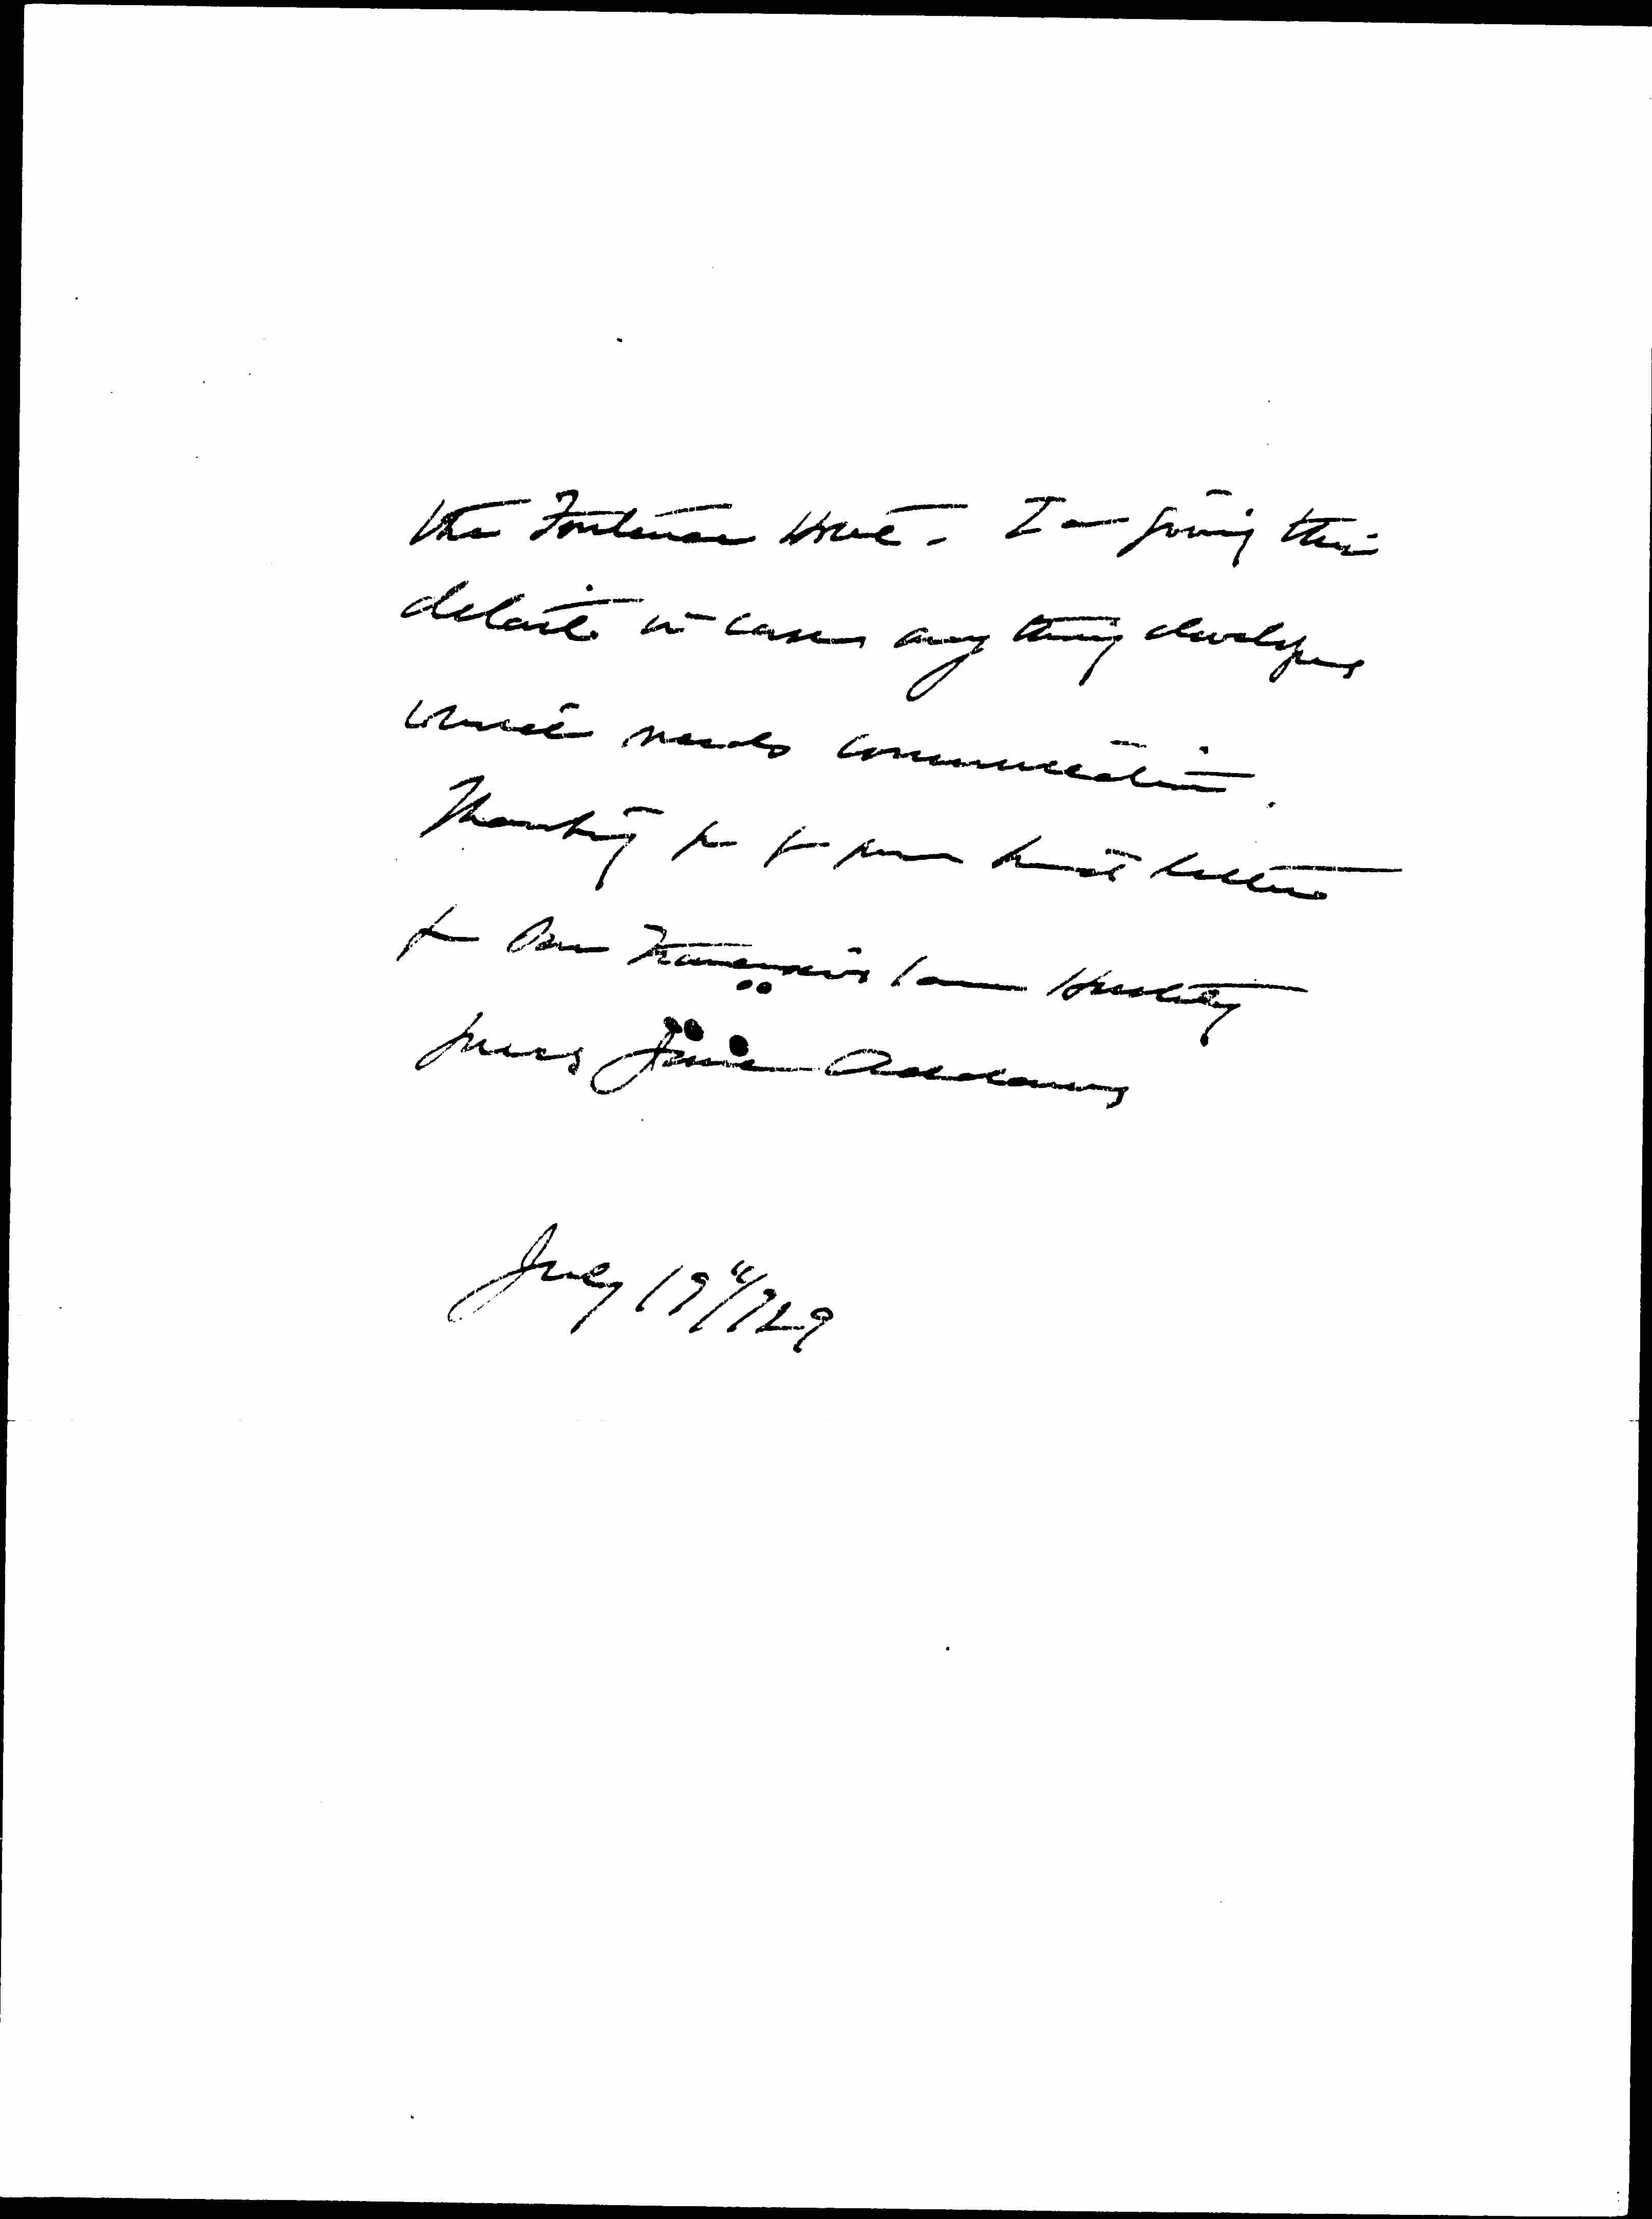 the Fontenac Hotel. I am giving this
details in case any thing develops
which needs communication.
Thanking you for your kind letter
to our Treasurer I am Heartily
yours Jane Addams
July 19"/929